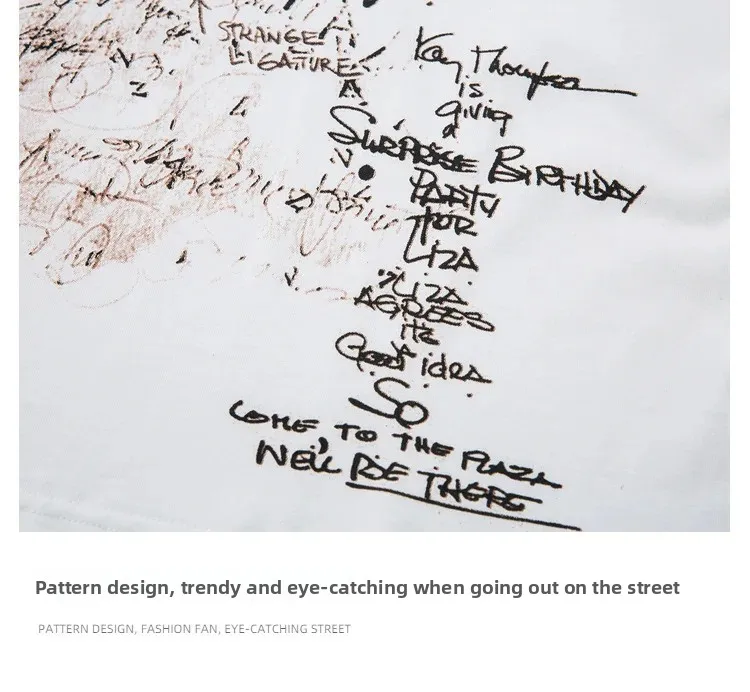 STRANGE
LIGATURE
Kay Thompson
is
giving
a
SURPRISE BIRTHDAY
PARTY
FOR
LIZA
LIZA
AGREES
it's
Good idea
So
COME TO THE PLAZA
WE'LL BE THERE
Pattern design, trendy and eye-catching when going out on the street
PATTERN DESIGN, FASHION FAN, EYE-CATCHING STREET